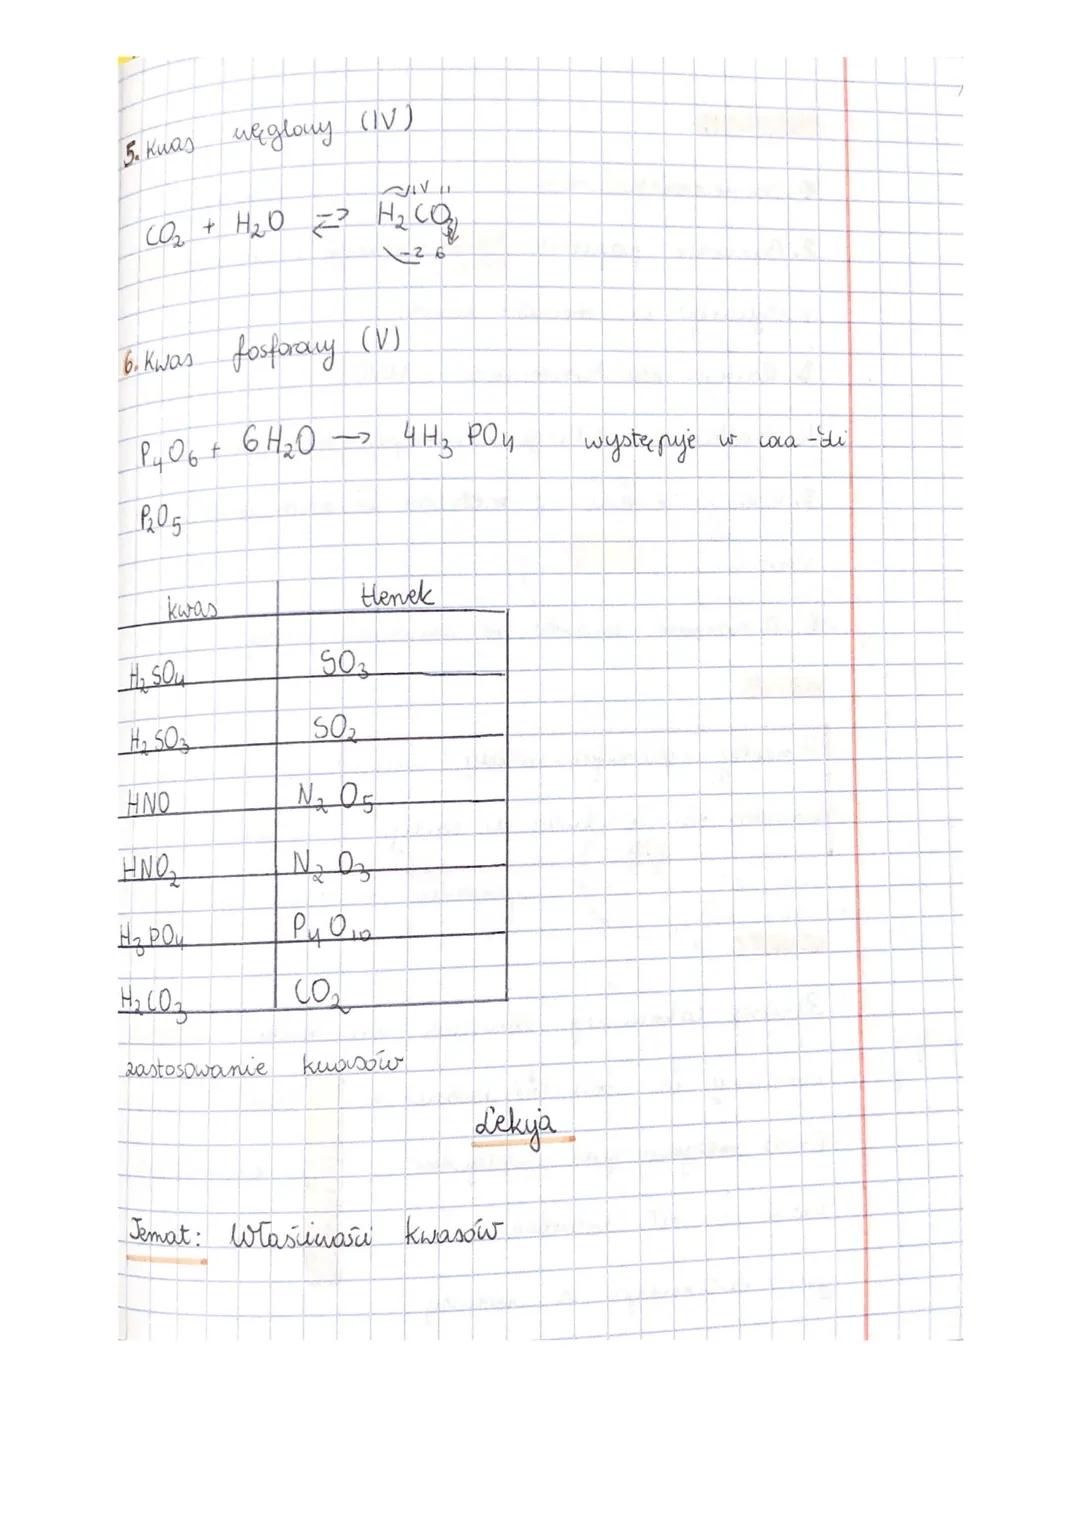 5. Kwas węglowy (IV)
IV II
CO₂ + H₂O ⇄ H₂CO₃
-2 6
6. Kwas fosforowy (V)
P₄O₆ + 6H₂O → 4H₃PO₄ występuje w
P₂O₅
kwas tlenek
H₂SO₄ SO₃
H₂SO₃ SO₂
HNO N₂O₅
HNO₂ N₂O₃
H₃PO₄ P₄O₁₀
H₂CO₃ CO₂
zastosowanie kwasów
Lekcja
Temat: Właściwości kwasów